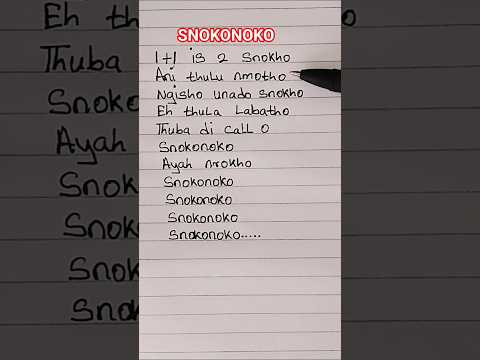 SNOKONOKO
1+1 is 2 Snokho
Ani thulu nmotho
Ngisho unado snokho
Eh thula Labatho
Thuba di call o
Snokonoko
Ayah nrokho
Snokonoko
Snokonoko
Snokonoko
Snokonoko.....